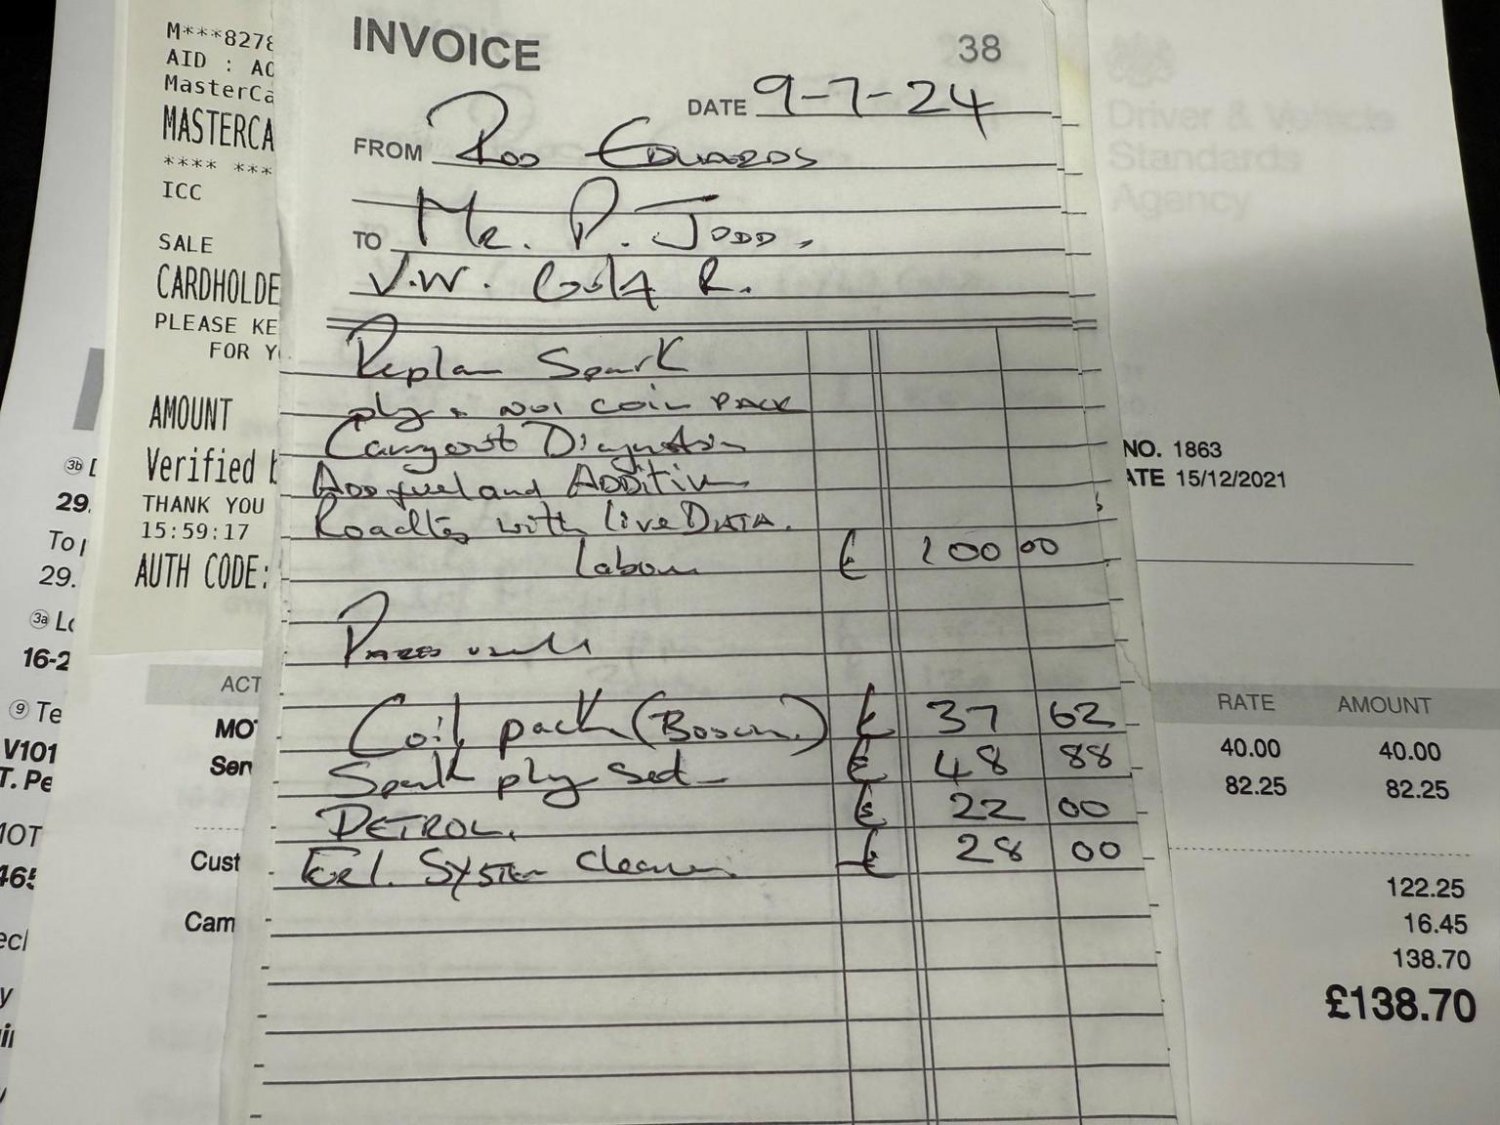 M***8278
AID : A0
MasterCa
MASTERCA
**** ***
ICC
SALE
CARDHOLDE
PLEASE KE
FOR Y
AMOUNT
Verified b
THANK YOU
15:59:17
AUTH CODE:
INVOICE
38
DATE 9-7-24
FROM Rod Edwards
TO Mr. P. Todd.
V.W. Golf R.
Replace Spark
plugs No1 coil pack
Carryout Diagnostic
Add fuel and Additive
Roadtest with live DATA.
Labour £ 100 00
Parts used
Coil pack (Bosch.) £ 37 62
Spark plug set £ 48 88
PETROL. £ 22 00
Fuel. System Cleaner. £ 28 00
Driver & Vehicle
Standards
Agency
NO. 1863
ATE 15/12/2021
3b
29.
To
29.
3a Lo
16-2
9 Te
V101
T. Pe
MOT
465
ecl
y
ACT
RATE AMOUNT
MO 40.00 40.00
Ser 82.25 82.25
Cust 122.25
16.45
Cam 138.70
£138.70